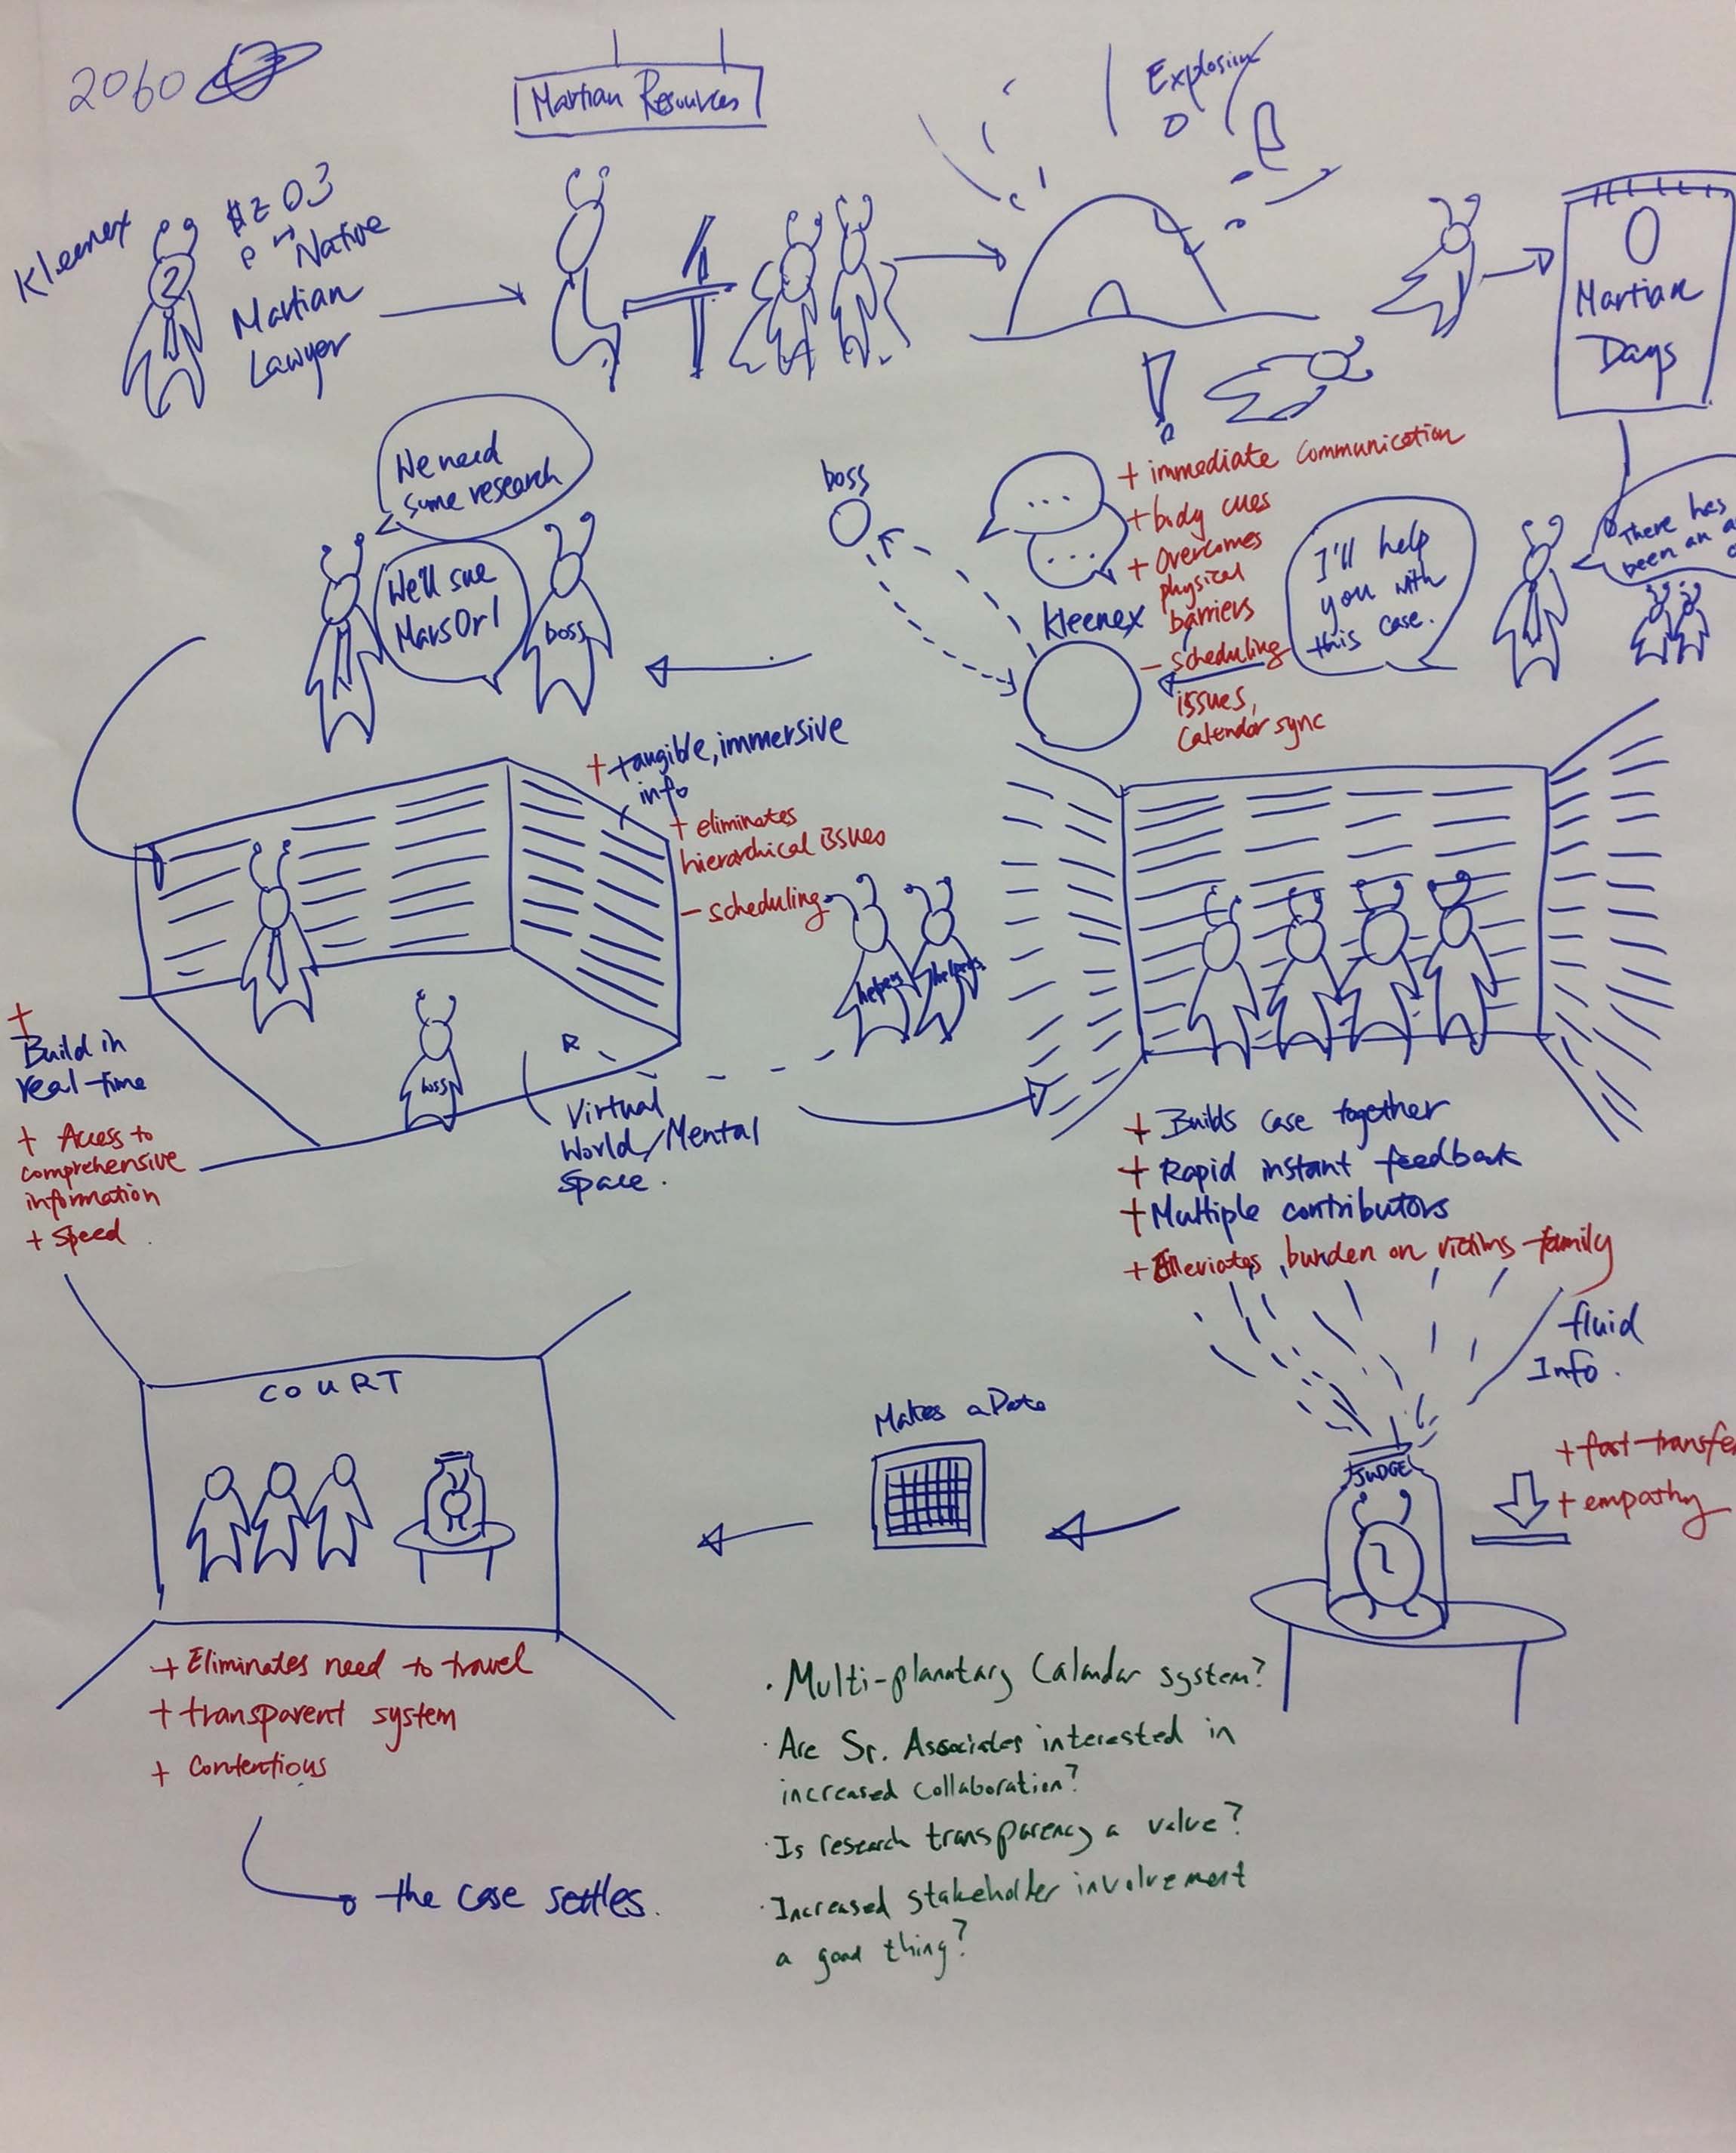 2060
Martian Resources
Explosion
Kleenex
Native
Martian
Lawyer
0
Martian
Days
We need
some research
We'll sue
MarsOr1
boss
boss
...
...
Kleenex
+ immediate communication
+ body cues
+ Overcomes
physical
barriers
- scheduling
issues,
Calendar sync
I'll help
you with
this case.
There has
been an a
+ tangible, immersive
info
+ eliminates
hierarchical issues
- scheduling
helpers
helpers
boss
R
Virtual
World/Mental
Space.
+
Build in
real-time
+ Access to
comprehensive
information
+ Speed
+ Builds case together
+ Rapid instant feedback
+ Multiple contributors
+ Alleviates burden on victims family
fluid
Info.
JUDGE
+ fast transfe
+ empathy
Makes a Date
COURT
+ Eliminates need to travel
+ transparent system
+ Contentious
the case settles.
· Multi-planatary Calandar system?
· Are Sr. Associates interested in
increased collaboration?
· Is research transparency a value?
· Increased stakeholder involvement
a good thing?